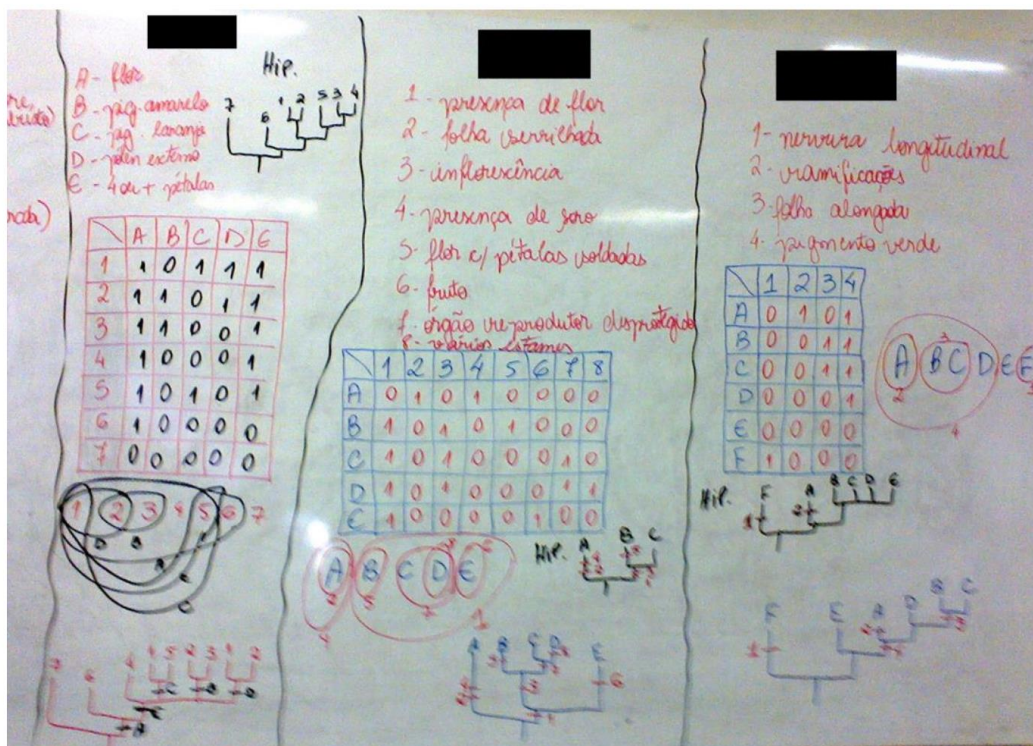 A - flor
B - pig. amarelo
C - pig. laranja
D - pólen externo
E - 4 ou + pétalas
Hip.
7 6 1 2 5 3 4
A B C D E
1 1 0 1 1 1
2 1 1 0 1 1
3 1 1 0 0 1
4 1 0 0 0 1
5 1 0 1 0 1
6 1 0 0 0 0
7 0 0 0 0 0
1 2 3 4 5 6 7
1 - presença de flor
2 - folha serrilhada
3 - inflorescência
4 - presença de soro
5 - flor c/ pétalas soldadas
6 - fruto
7 - órgão reprodutor desprotegido
8 - vários estames
1 2 3 4 5 6 7 8
A 0 1 0 1 0 0 0 0
B 1 0 1 0 1 0 0 0
C 1 0 1 0 0 0 1 0
D 1 0 1 0 0 0 1 1
E 1 0 0 0 0 1 0 0
A B C D E
Hip.
A B C
1 - nervura longitudinal
2 - ramificações
3 - folha alongada
4 - pigmento verde
1 2 3 4
A 0 1 0 1
B 0 0 1 1
C 0 0 1 1
D 0 0 0 1
E 0 0 0 0
F 1 0 0 0
A B C D E F
Hip.
F A B C D E
F E A D B C